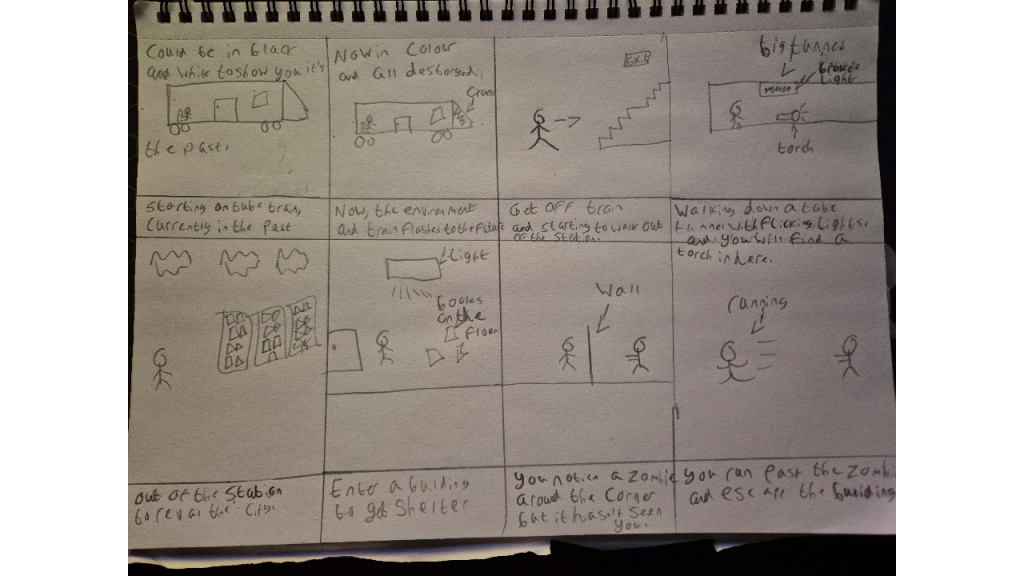 Could be in black
and while to show you it's
the past.
Now in Colour
and all destoryed,
EXit
big tunnel
light
torch
Starting on tube train,
Currently in the past
Now, the environment
and train flashes to the future
Get OFF train
and starting to walk out
of the station.
Walking down a tube
tunnel with flicking lights.
and you will find a
torch in here.
light
books
on the
floor
Wall
running
out of the station
to reval the City.
Enter a building
to get Shelter
you notice a zombie
around the Corner
but it hasn't seen
you.
you run past the zombi
and escape the building